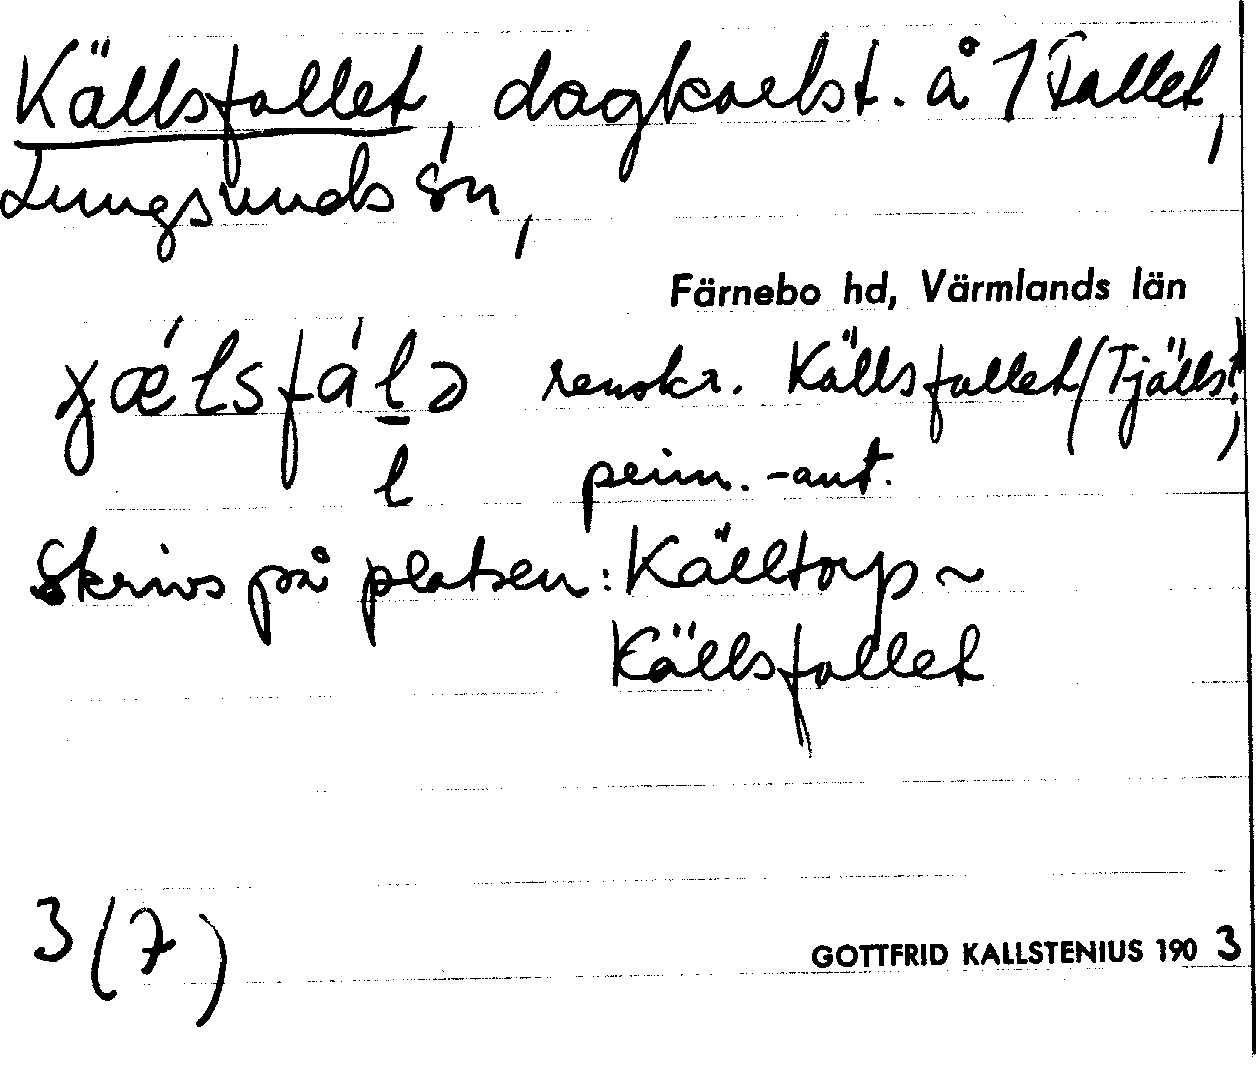 Källsfallet, dagkarlst. å 1 Fallet,
Lungsunds sn,
Färnebo hd, Värmlands län
renskr. Källsfallet (Tjälls!)
l
Skrivs på platsen: Källtorp ~
Källsfallet
3 (7)
GOTTFRID KALLSTENIUS 1903